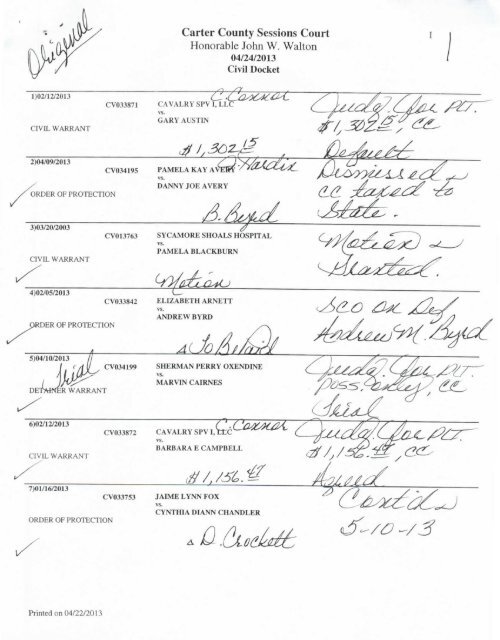 Original
Carter County Sessions Court
Honorable John W. Walton
04/24/2013
Civil Docket
1
1)02/12/2013
CV033871
CAVALRY SPV I, LLC C. Connor
vs.
GARY AUSTIN
CIVIL WARRANT
$1,302.15
Judg. for PLT.
$1,302.15, CC
Default
2)04/09/2013
CV034195
PAMELA KAY AVERY Hardin
vs.
DANNY JOE AVERY
ORDER OF PROTECTION
B. Byrd
Dismissed
CC taxed to
State.
3)03/20/2003
CV013763
SYCAMORE SHOALS HOSPITAL
vs.
PAMELA BLACKBURN
CIVIL WARRANT
Motion
Motion
Granted.
4)02/05/2013
CV033842
ELIZABETH ARNETT
vs.
ANDREW BYRD
ORDER OF PROTECTION
Δ To Be
SCO on Def
Andrew M. Byrd
5)04/10/2013
Trial
CV034199
SHERMAN PERRY OXENDINE
vs.
MARVIN CAIRNES
DETAINER WARRANT
Judg. for PLT.
Poss. Only, CC
Trial
6)02/12/2013
CV033872
CAVALRY SPV I, LLC C. Connor
vs.
BARBARA E CAMPBELL
CIVIL WARRANT
$1,156.47
Judg. for PLT.
$1,156.47, CC
Agreed
7)01/16/2013
CV033753
JAIME LYNN FOX
vs.
CYNTHIA DIANN CHANDLER
ORDER OF PROTECTION
Δ D. Crockett
Cont'd
5-10-13
Printed on 04/22/2013